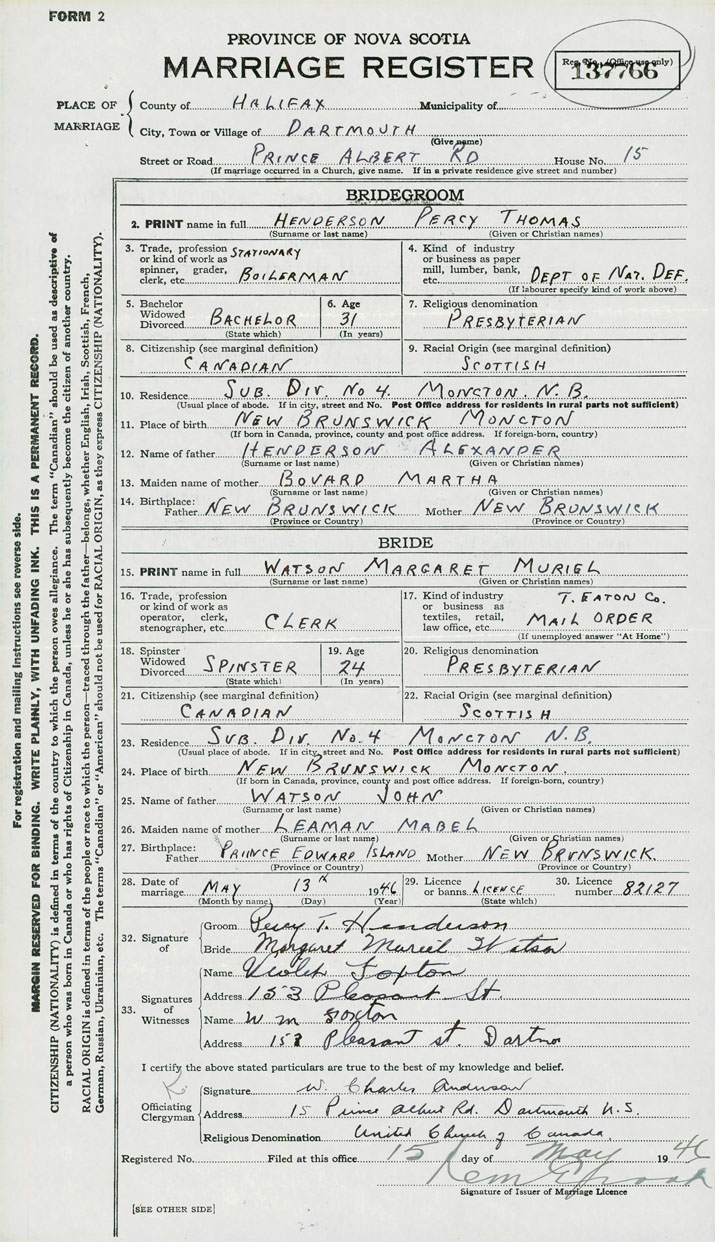 FORM 2
PROVINCE OF NOVA SCOTIA
MARRIAGE REGISTER
Reg. No. (Office use only)
137766
PLACE OF MARRIAGE
County of HALIFAX Municipality of
City, Town or Village of DARTMOUTH
(Give name)
Street or Road PRINCE ALBERT RD House No. 15
(If marriage occurred in a Church, give name. If in a private residence give street and number)
BRIDEGROOM
2. PRINT name in full HENDERSON PERCY THOMAS
(Surname or last name) (Given or Christian names)
3. Trade, profession or kind of work as spinner, grader, clerk, etc. STATIONARY BOILERMAN
4. Kind of industry or business as paper mill, lumber, bank, etc. DEPT OF NAT. DEF.
(If labourer specify kind of work above)
5. Bachelor Widowed Divorced BACHELOR
(State which)
6. Age 31
(In years)
7. Religious denomination
PRESBYTERIAN
8. Citizenship (see marginal definition)
CANADIAN
9. Racial Origin (see marginal definition)
SCOTTISH
10. Residence SUB. DIV. NO 4. MONCTON. N.B.
(Usual place of abode. If in city, street and No. Post Office address for residents in rural parts not sufficient)
11. Place of birth NEW BRUNSWICK MONCTON
(If born in Canada, province, county and post office address. If foreign-born, country)
12. Name of father HENDERSON ALEXANDER
(Surname or last name) (Given or Christian names)
13. Maiden name of mother BOVARD MARTHA
(Surname or last name) (Given or Christian names)
14. Birthplace: Father NEW BRUNSWICK Mother NEW BRUNSWICK
(Province or Country) (Province or Country)
BRIDE
15. PRINT name in full WATSON MARGARET MURIEL
(Surname or last name) (Given or Christian names)
16. Trade, profession or kind of work as operator, clerk, stenographer, etc. CLERK
17. Kind of industry or business as textiles, retail, law office, etc. T. EATON CO. MAIL ORDER
(If unemployed answer "At Home")
18. Spinster Widowed Divorced SPINSTER
(State which)
19. Age 24
(In years)
20. Religious denomination
PRESBYTERIAN
21. Citizenship (see marginal definition)
CANADIAN
22. Racial Origin (see marginal definition)
SCOTTISH
23. Residence SUB. DIV. NO. 4 MONCTON N.B.
(Usual place of abode. If in city, street and No. Post Office address for residents in rural parts not sufficient)
24. Place of birth NEW BRUNSWICK MONCTON.
(If born in Canada, province, county and post office address. If foreign-born, country)
25. Name of father WATSON JOHN
(Surname or last name) (Given or Christian names)
26. Maiden name of mother LEAMAN MABEL
(Surname or last name) (Given or Christian names)
27. Birthplace: Father PRINCE EDWARD ISLAND Mother NEW BRUNSWICK.
(Province or Country) (Province or Country)
28. Date of marriage MAY 13th 1946
(Month by name) (Day) (Year)
29. Licence or banns LICENCE
(State which)
30. Licence number 82127
32. Signature of
Groom Percy T. Henderson
Bride Margaret Muriel Watson
33. Signatures of Witnesses
Name Violet Foxton
Address 153 Pleasant St.
Name Wm Foxton
Address 153 Pleasant st. Dartmo
I certify the above stated particulars are true to the best of my knowledge and belief.
Officiating Clergyman
Signature W. Charles Anderson
Address 15 Prince Albert Rd. Dartmouth N.S.
Religious Denomination United Church of Canada.
Registered No. Filed at this office 15 day of May 1946
Signature of Issuer of Marriage Licence
[SEE OTHER SIDE]
For registration and mailing instructions see reverse side.
MARGIN RESERVED FOR BINDING. WRITE PLAINLY, WITH UNFADING INK. THIS IS A PERMANENT RECORD.
CITIZENSHIP (NATIONALITY) is defined in terms of the country to which the person owes allegiance. The term "Canadian" should be used as descriptive of
a person who was born in Canada or who has rights of Citizenship in Canada, unless he or she has subsequently become the citizen of another country.
RACIAL ORIGIN is defined in terms of the people or race to which the person—traced through the father—belongs, whether English, Irish, Scottish, French,
German, Russian, Ukrainian, etc. The terms "Canadian" or "American" should not be used for RACIAL ORIGIN, as they express CITIZENSHIP (NATIONALITY).